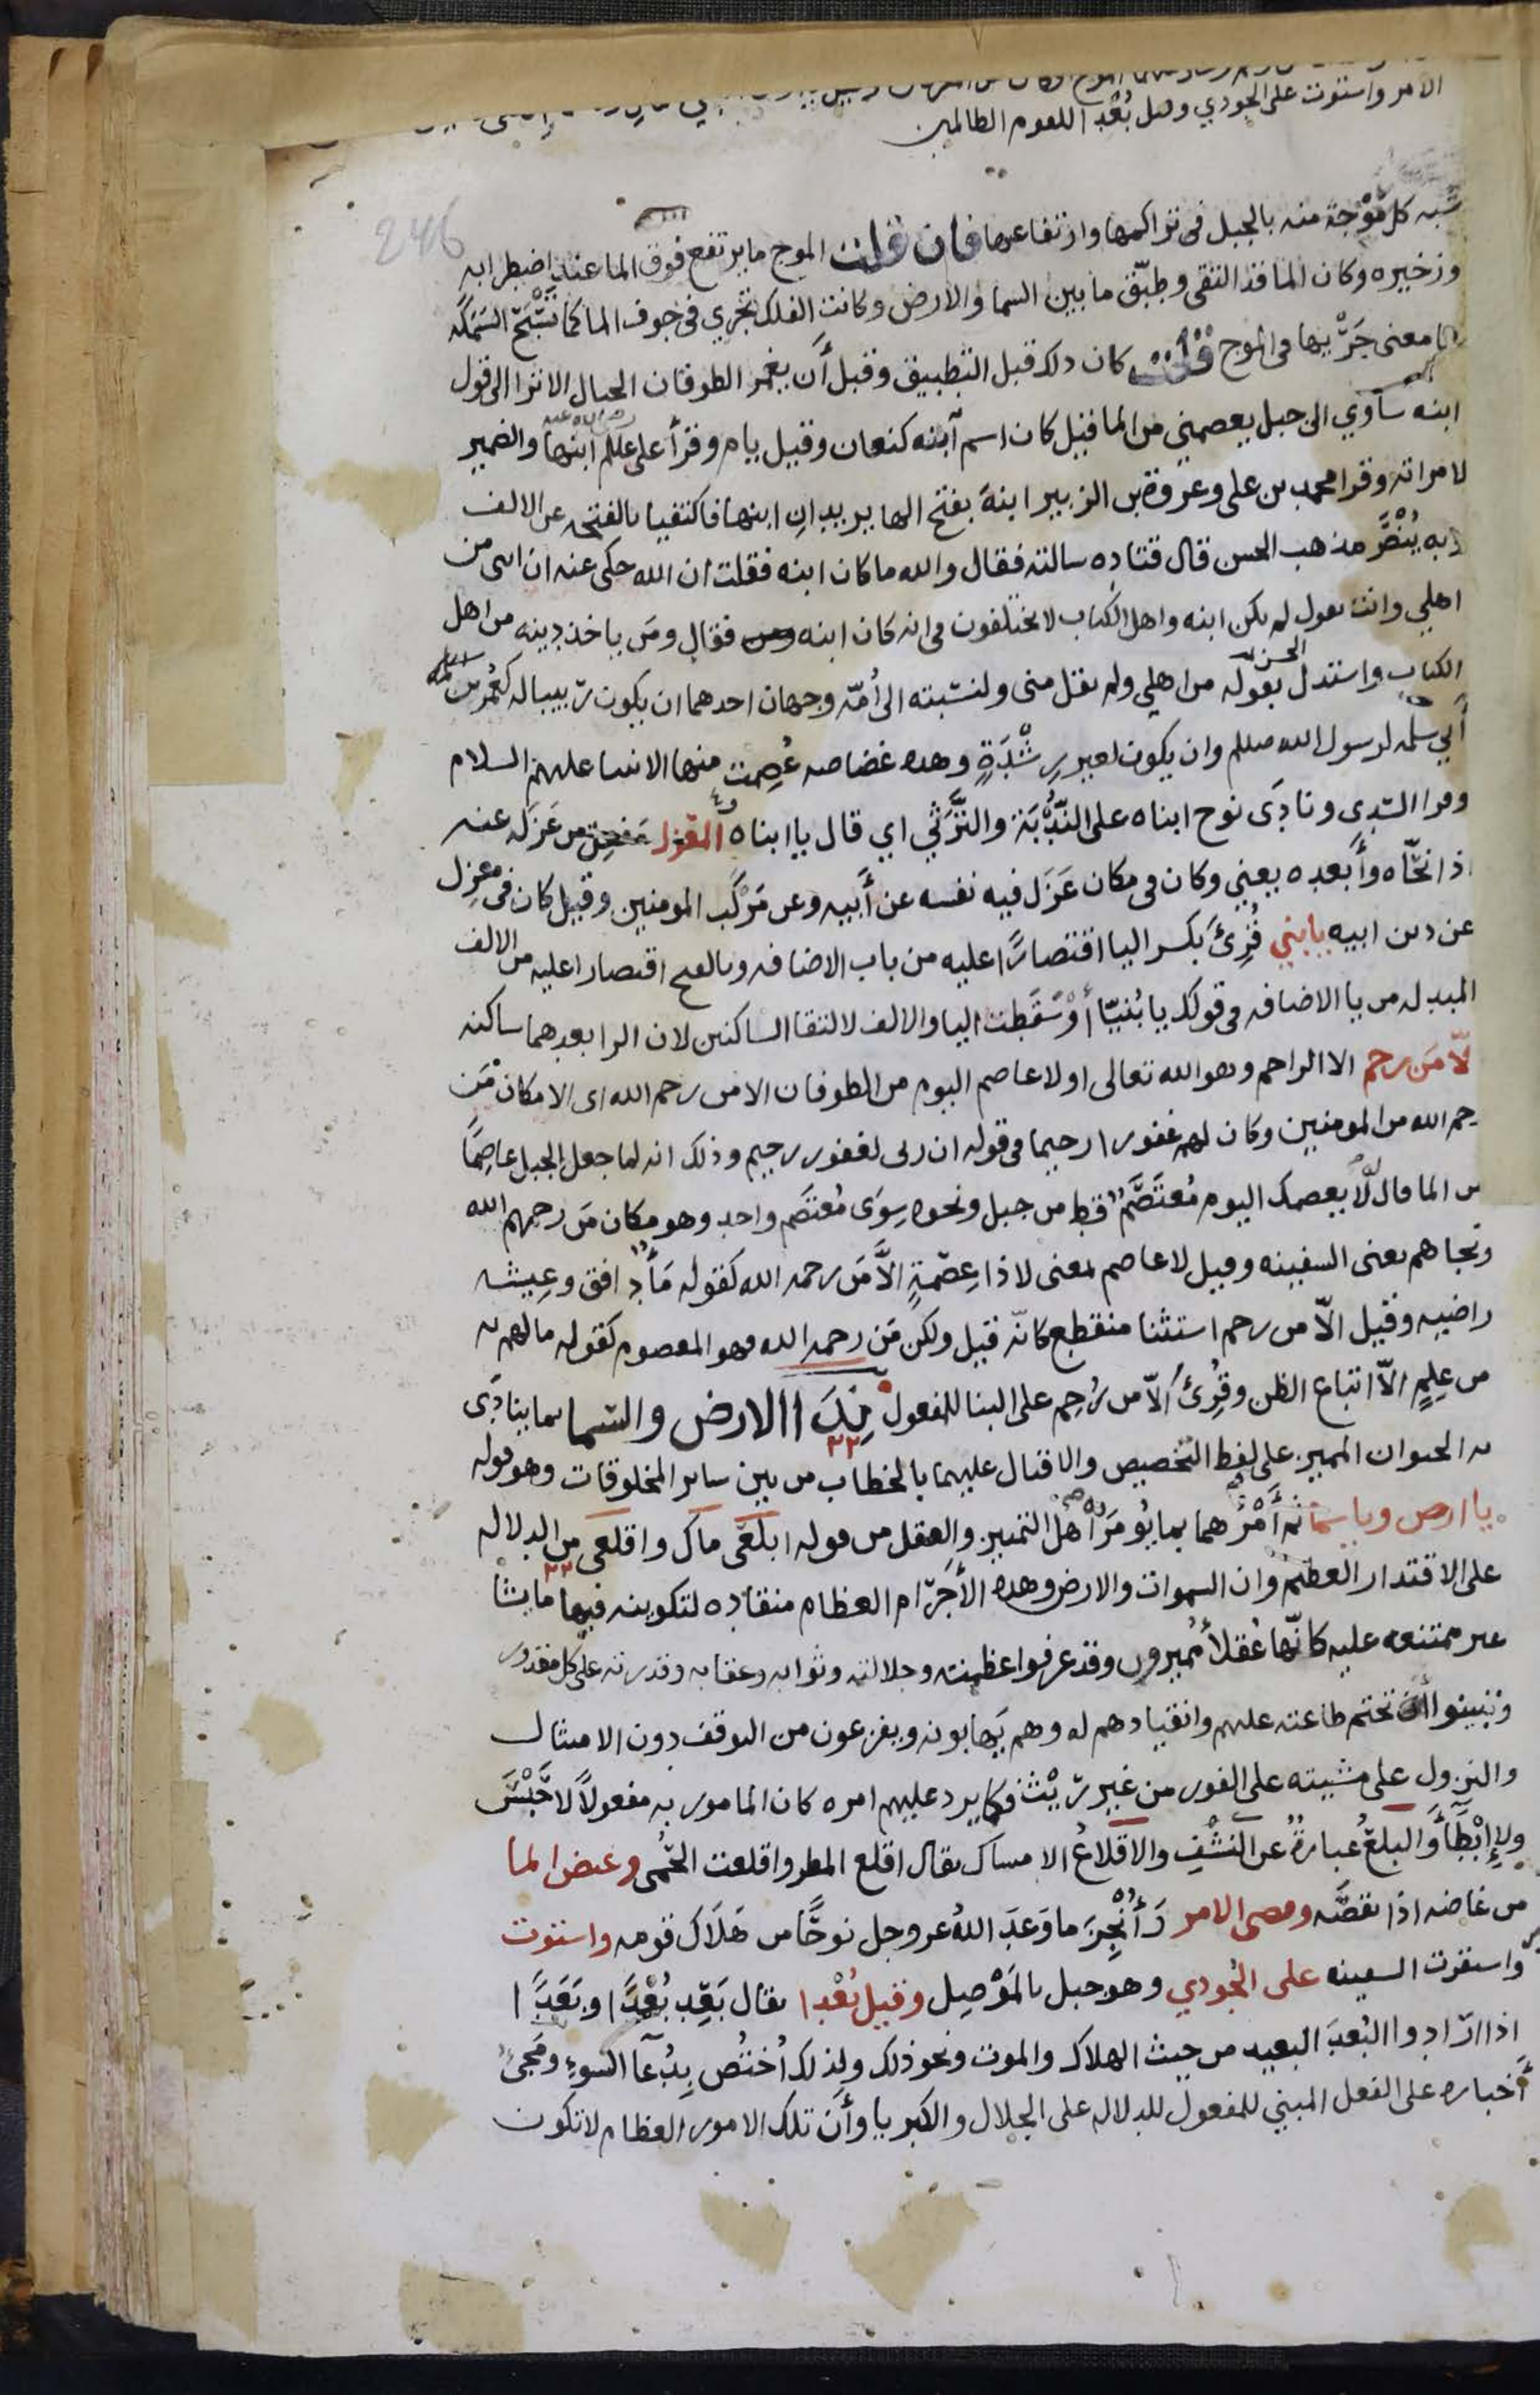 الامر واستوت على الجودي وقيل بُعْدًا للقوم الظالمين
246
شبه كل مَوْجة منه بالجبل فى تراكمها وارتفاعها فان قلت الموج ما يرتفع فوق الما عند اضطرابه
وزخيره وكان الما قد التقى وطبّق ما بين السما والارض وكانت الفلك تجْري فى جوف الما كما تَسْبَحُ السَمَكة
فما معنى جَرْيها فى الموج قلت كان ذلك قبل التطبيق وقبل أن يغمر الطوفان الجبال الا ترا الى قول
ابنه سآوي الى جبل يعصمني من الما قيل كان اسم آبنه كنعان وقيل يام وقرأ على علـلم ابنها والضمير
لامراته وقرا محمد بن على وعروة بن الزبير ابنهَ بفتح الها يريدانِ ابنها فاكتفيا بالفتحه عن الالف
وبه يُنْصَر مذهب الحسن قال قتاده سالته فقال والله ما كان ابنه فقلت ان الله حكى عنه ان ابنى من
اهلي وانت تقول لم يكن ابنه واهل الكتاب لا يختلفون فى انه كان ابنه فقال ومَن ياخذ دينه من اهل
الكتاب واستدل بقوله من اهلي ولم يقل منى ولنسبته الى أُمّه وجهان احدهما ان يكون ربيبا له كعُمر بن
أَبي سلمه لرسول الله صللم وان يكون لغير رِشْدَةٍ وهذه غضاضه عُصِمت منها الانبيا عليهم السلام
وقرا السّدى ونادَى نوح ابناه على النُّدْبَة والتَّرَثّي اي قال يا ابناه والمَعْزِل مَفعِل من عَزَله عنه
اذا نحّاه وأَبعده يعني وكان فى مكان عَزَل فيه نفسه عن أَبيه وعن مَرْكَب المومنين وقيل كان فى معزِل
عن دين ابيه يا بني قُرِئَ بكسر اليا اقتصارًا عليه من ياب الاضافه وبالفتح اقتصارا عليه من الالف
المبدله من يا الاضافه فى قولك يا بُنيّا أَوْ سَقَطت اليا والالف لالتقا الساكنين لان الرا بعدهما ساكنه
لّا مَن رحم الا الراحم وهو الله تعالى او لا عاصم اليوم من الطوفان الا من رحم الله اى الا مكانَ مَن
رحم الله من المومنين وكان لهم غفورا رحيما فى قوله ان ربى لغفور رحيم وذلك انه لما جعل الجبل عاصِمًا
من الما قال لّا يعصمك اليوم مُعتَصَمٌ قط من جبل ونحوه سِوَى مُعتصَم واحد وهو مكان مَن رحمهم الله
ونجاهم يعنى السفينه وقيل لا عاصم لمعنى لا ذا عِصْمَةٍ الَّا مَن رحمه الله كقوله مَآءٍ دافق وعيشه
راضيه وقيل الّا من رحم استثنا منقطع كانّه قيل ولكن مَن رحمه الله فهو المعصوم كقوله ما لهم به
من عِلمٍ الّا اتباع الظن وقُرِئَ الّا من رُحِم على البنا للمفعول نِدَا الارض والسما بما ينادَى
به الحيوان المميز على لفظ التخصيص والاقبال عليهما بالخطاب من بين ساير المخلوقات وهو قوله
يا ارض ويا سما ثم أَمْرُهما بما يُومَر به اهل التمييز والعقل من قوله ابلعى ماك واقلعى من الدلاله
على الاقتدار العظيم وان السموات والارض وهذه الأَجْرَام العظام منقاده لتكوينه فيها ما يشا
غير ممتنعه عليه كانّها عُقلأ مُميزون وقد عرفوا عظمته وجلالته وثوابه وعقابه وقدرته على كل مقدور
وتبينوا تحتم طاعته عليهم وانقيادهم له وهم يَهابونه ويفزعون من التوقف دون الامتثال
والنزول على مشيته على الفور من غير رَيْث فكما يرد عليهم امره كان المامور به مفعولًا لا حَبْسَ
ولا إِبْطَآءَ والبلعُ عبارةٌ عن النَشْفِ والاقلاعُ الامساك يقال اقلع المطر واقلعت الحُمى وغيض الما
من غاضه اذا نقصَه وقضى الامر وَأُنْجِزَ ما وَعَدَ اللهُ عز وجل نوحًا من هَلَاك قومه واستوت
واستقرت السفينه على الجُودي وهو جبل بالمَوْصِل وقيل بُعْدا يقال بَعِد بُعْدًا وبَعَدًا
اذا ارادوا البُعدَ البعيد من حيث الهلاك والموت ونحو ذلك ولذلك اُختُص بِدُعآ السوءِ ومَجيُ
أَخباره على الفعل المبني للمفعول للدلاله على الجلال والكبريا وأَن تلك الامور العظام لا تكون